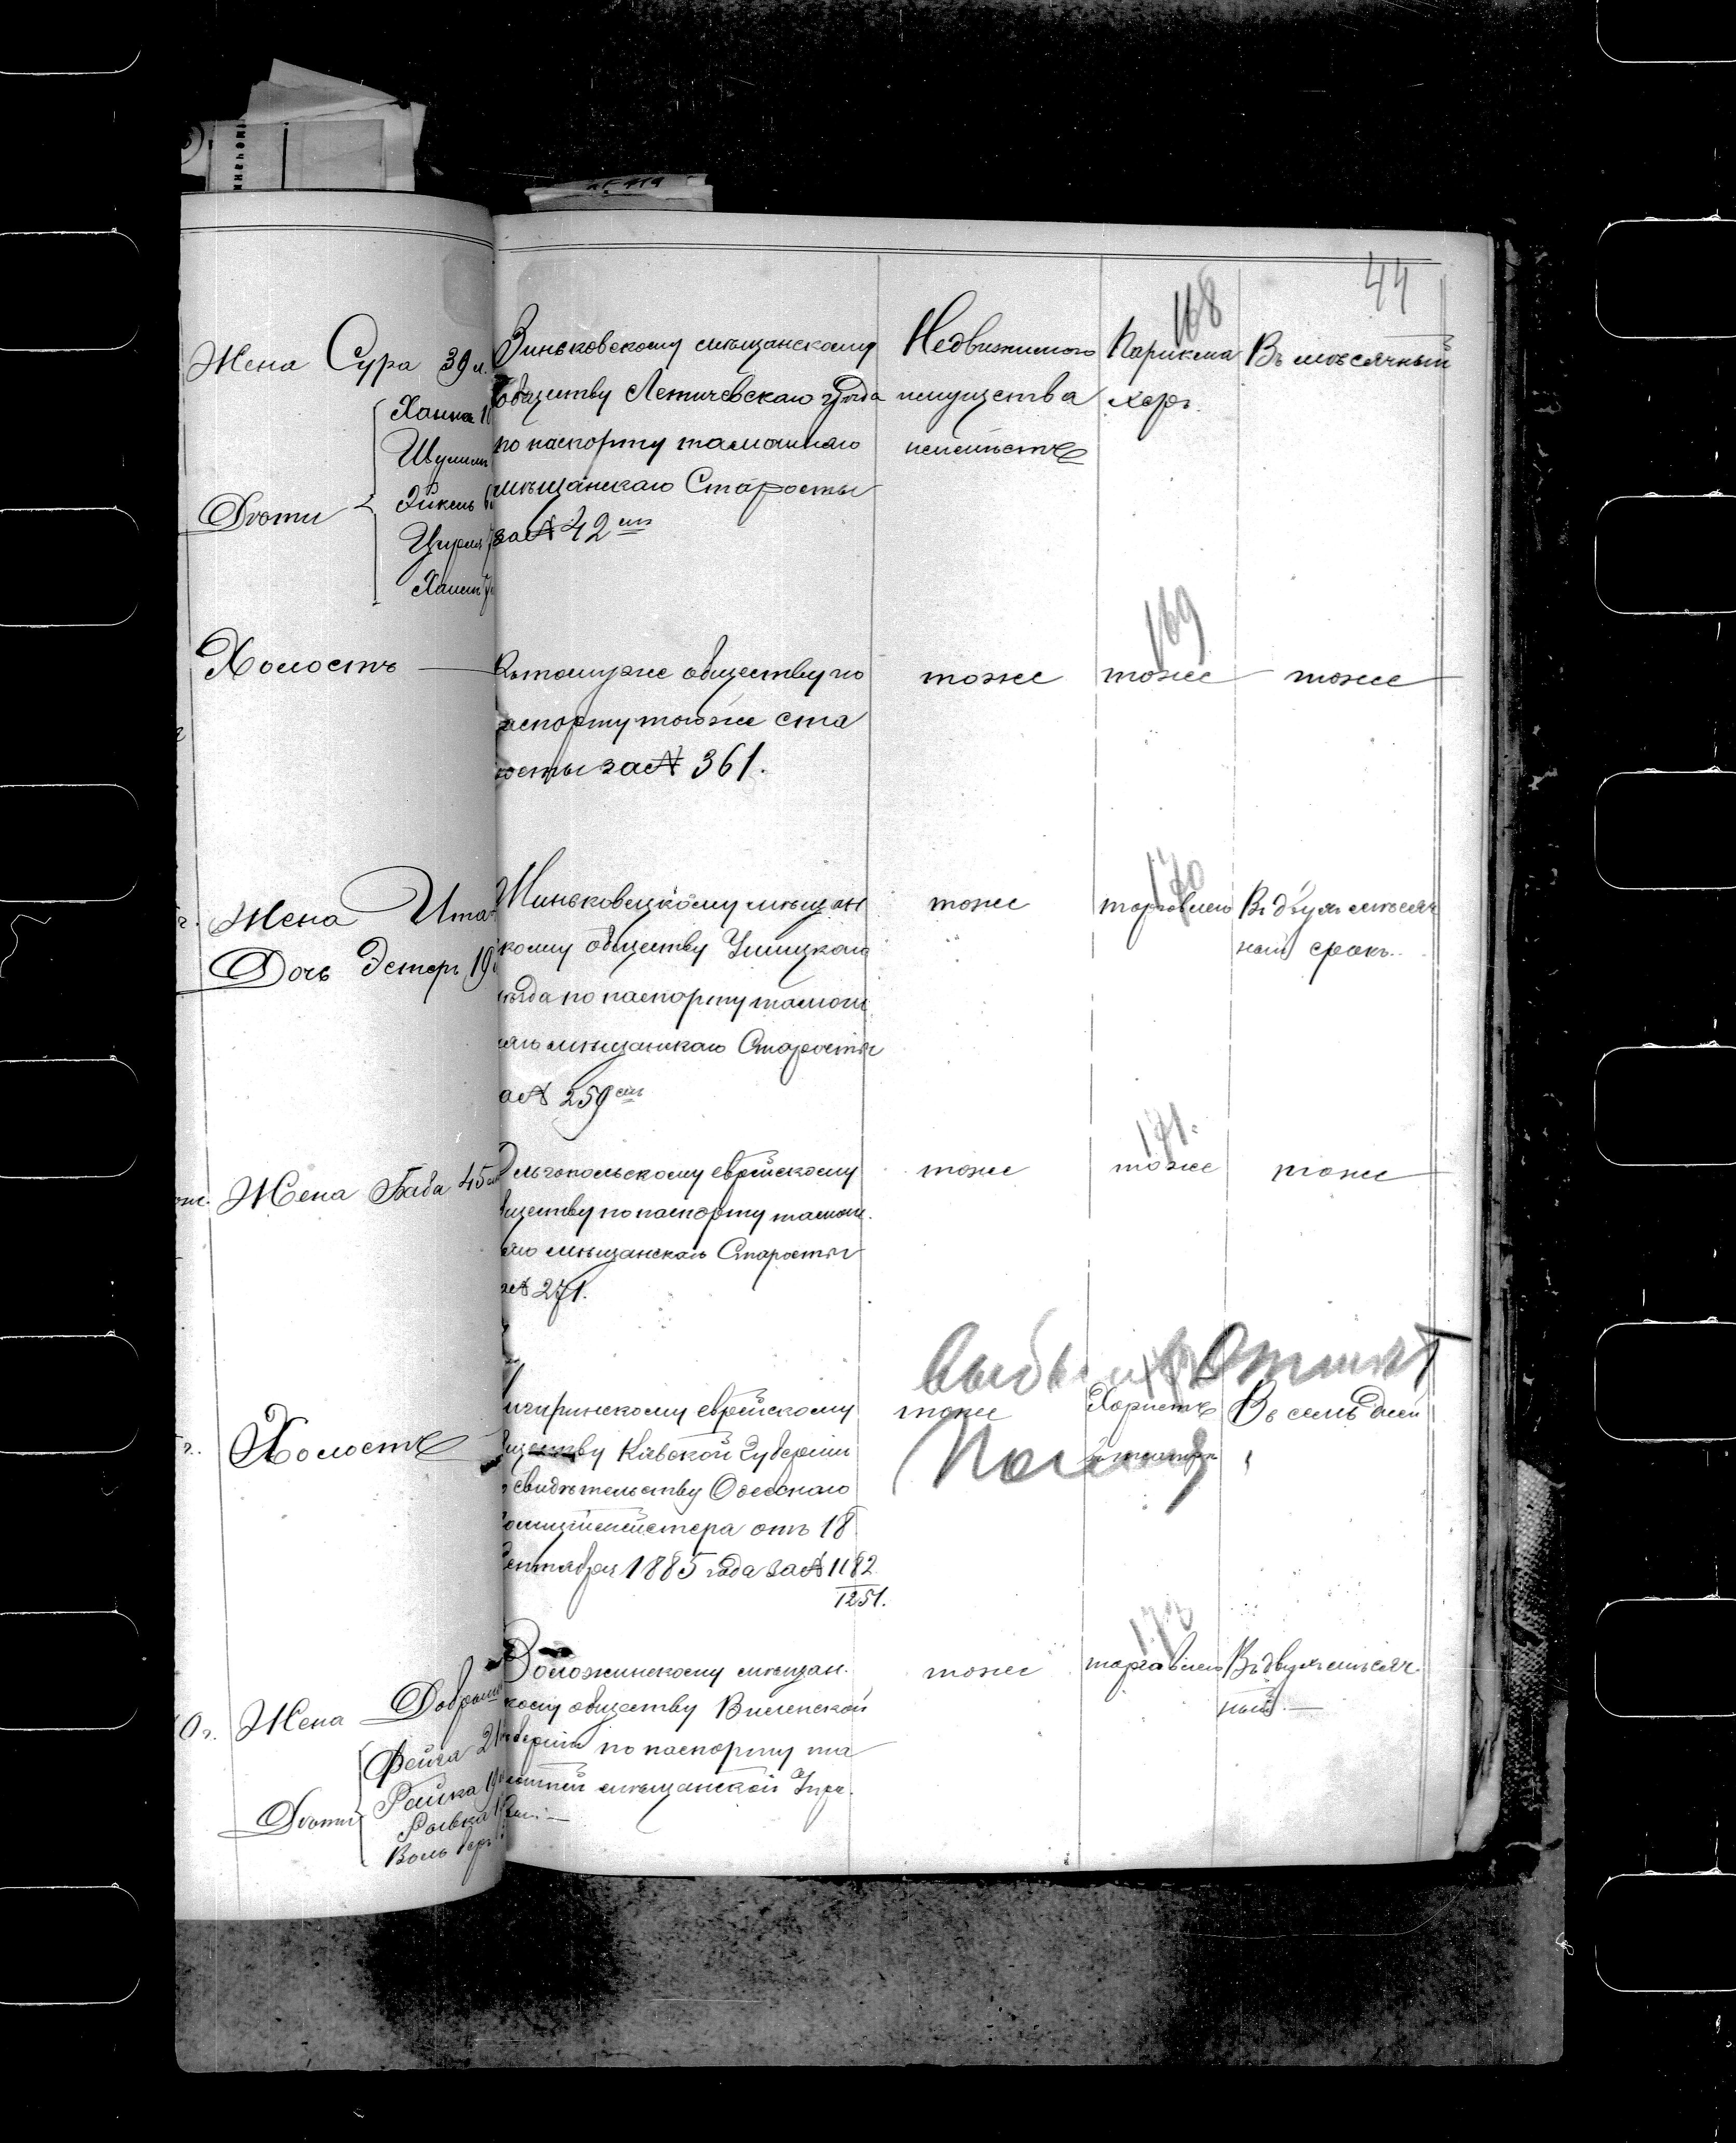 44
168
Жена Сура 39 л.
Дѣти
Ханна
Шулим
Эйкель
Цирля
Зиньковскому мѣщанскому
обществу Летичевскаго уѣзда
по паспорту тамошняго
мѣщанскаго Старосты
за № 42 ст
Недвижимого
имущества
неимѣетъ
Парикма
херъ.
Въ мѣсячный
169
Холостъ
Къ томуже обществу по
аспорту тогоже ста
осты за № 361.
тоже
тоже
тоже
170
Жена Ита
Дочь Эстеръ 19
Миньковецкому мѣщан
скому обществу Ушицкаго
уѣзда по паспорту тамош
няго мѣщанскаго Старосты
за № 259 ст
тоже
торговлею
Въ двухъ мѣсяч
ный срокъ.
171.
Жена Баба 45
Ольгопольскому еврейскому
обществу по паспорту тамош.
няго мѣщанскаго Старосты
за № 271.
тоже
тоже
тоже
Холостъ
Чигиринскому еврейскому
обществу Кіевской Губерніи
по свидѣтельству Одесскаго
Полицiймейстера отъ 18
Сентября 1885 года за № 1182
1251.
тоже
Хористъ
въ театрѣ
Въ семь дней
173
Жена
Дѣти
Фейга 21
Рейка 19
Ривка
Воложинскому мѣщан.
скому обществу Виленской
губерніи по паспорту та
мошней мѣщанской Упра.
тоже
торговлею
Въ двухъ мѣсяч
ный. —